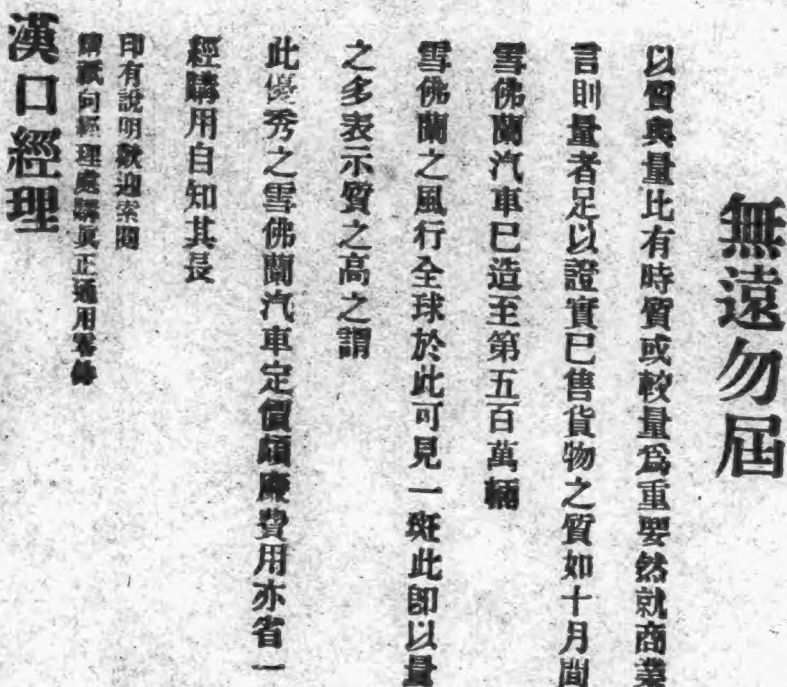 無遠勿屆
以質與量比有時質或較量爲重要然就商業
言則量者足以證實已售貨物之質如十月間
雪佛蘭汽車已造至第五百萬輛
雪佛蘭之風行全球於此可見一斑此卽以量
之多表示質之高之謂
此優秀之雪佛蘭汽車定價頗廉費用亦省一
經購用自知其長
印有說明歡迎索閱
請祇向經理處購真正通用零件
漢口經理